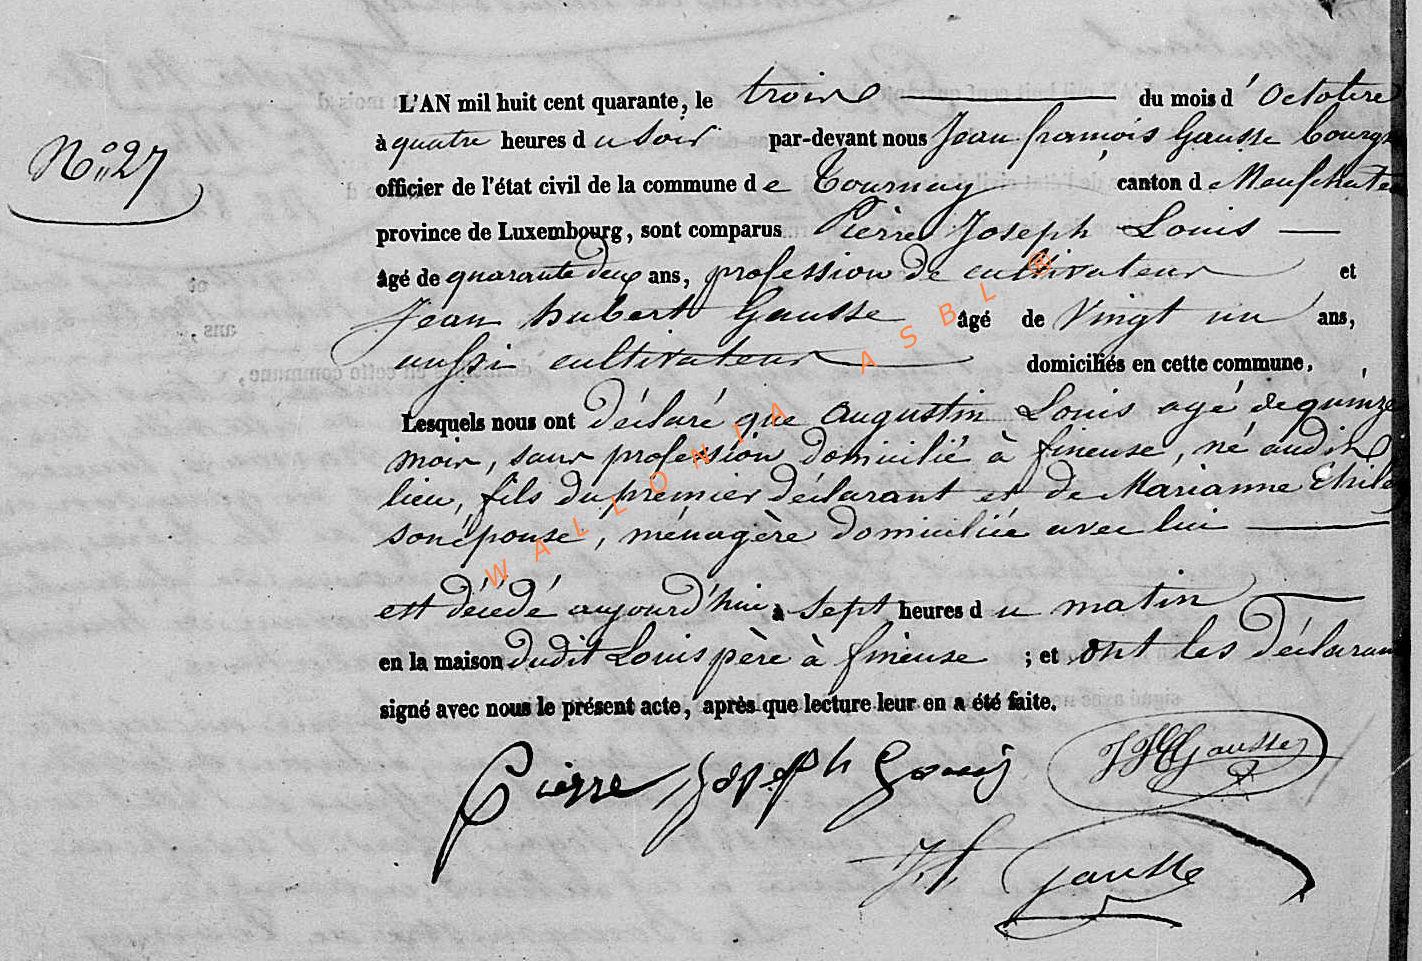 L'AN mil huit cent quarante, le trois du mois d'Octobre
N° 27
à quatre heures du Soir par-devant nous Jean françois Gausse
officier de l'état civil de la commune de Tournay canton de Neufchate
province de Luxembourg, sont comparus Pierre Joseph Louis
âgé de quarante deux ans, profession de cultivateur et
Jean hubert Gausse âgé de Vingt un ans,
aussi cultivateur domiciliés en cette commune,
Lesquels nous ont déclaré que Augustin Louis agé de quinze
mois, sans profession domicilié à fineuse, né audit
lieu, fils du premier déclarant et de Marianne
son épouse, ménagère domiciliée avec lui
est décédé aujourd'hui à Sept heures du matin
en la maison dudit Louis père à fineuse ; et ont les déclaran
signé avec nous le présent acte, après que lecture leur en a été faite.
Pierre Joseph Louis JHGausse
J.f. Gausse
WALLONIA ASBL ®